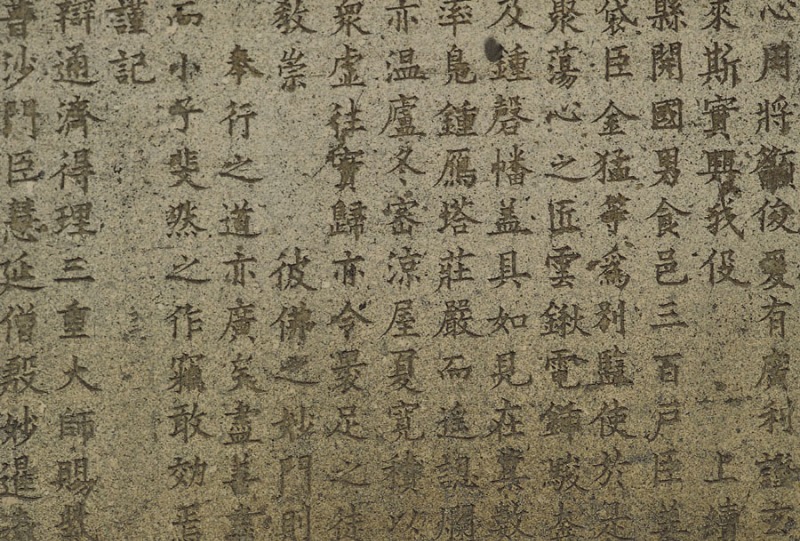 心用將籲俊爰有廣利證玄
來斯實興我伇 上續
縣開國男食邑三百戸臣姜
袋臣金猛等爲別監使於是
聚蕩心之匠雲鍬電鍤駿奔
及鍾磬幡蓋具如見在冀數
率鳧鍾鴈塔莊嚴而遙認爛
亦温廬冬密涼屋夏寬積以
衆虚往實歸亦令晏足之徒
敎崇 彼佛之妙門則
奉行之道亦廣矣盡善
而小子斐然之作竊敢効
謹記
辯通濟得理三重大師賜
普沙門臣慧延僧殿妙暹